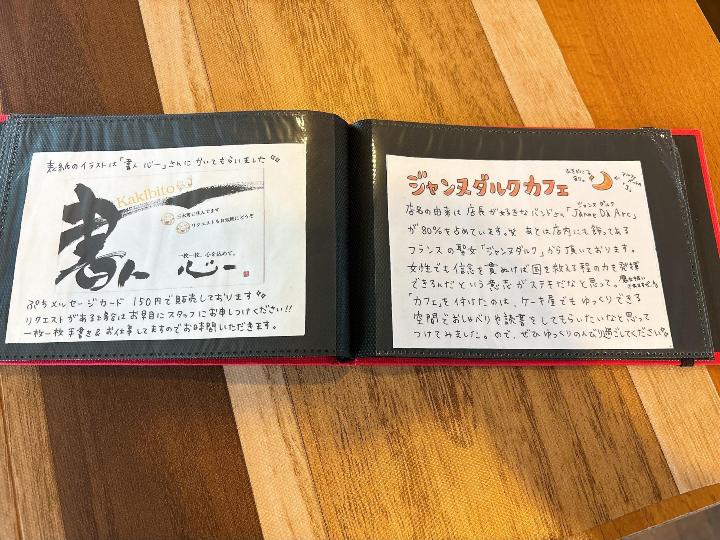 表紙のイラストは「書人 心一」さんにかいてもらいました
Kakibito
書人 心一
三木町に住んでます
リクエストもお気軽にどうぞ
一枚一枚、心を込めて。
ぷちメッセージカード 150円で販売しております
リクエストがある場合はお早目にスタッフにお申しつけください!!
一枚一枚 手書き&お仕事してますのでお時間いただきます。
ジャンヌダルクカフェ
店名の由来は店長が好きなバンドさん「Janne Da Arc」
ジャンヌダルク
が80%を占めています。笑 あとは店内にも飾ってある
フランスの聖女「ジャンヌダルク」から頂いております。
女性でも信念を貫ぬけば国を救える程の力を発揮
できるんだという意志がステキだなと思って。
「カフェ」を付けたのは、ケーキ屋でもゆっくりできる
空間でおしゃべりや読書をしてもらいたいなと思って
つけてみました。ので、ぜひゆっくりのんびり過ごしてください